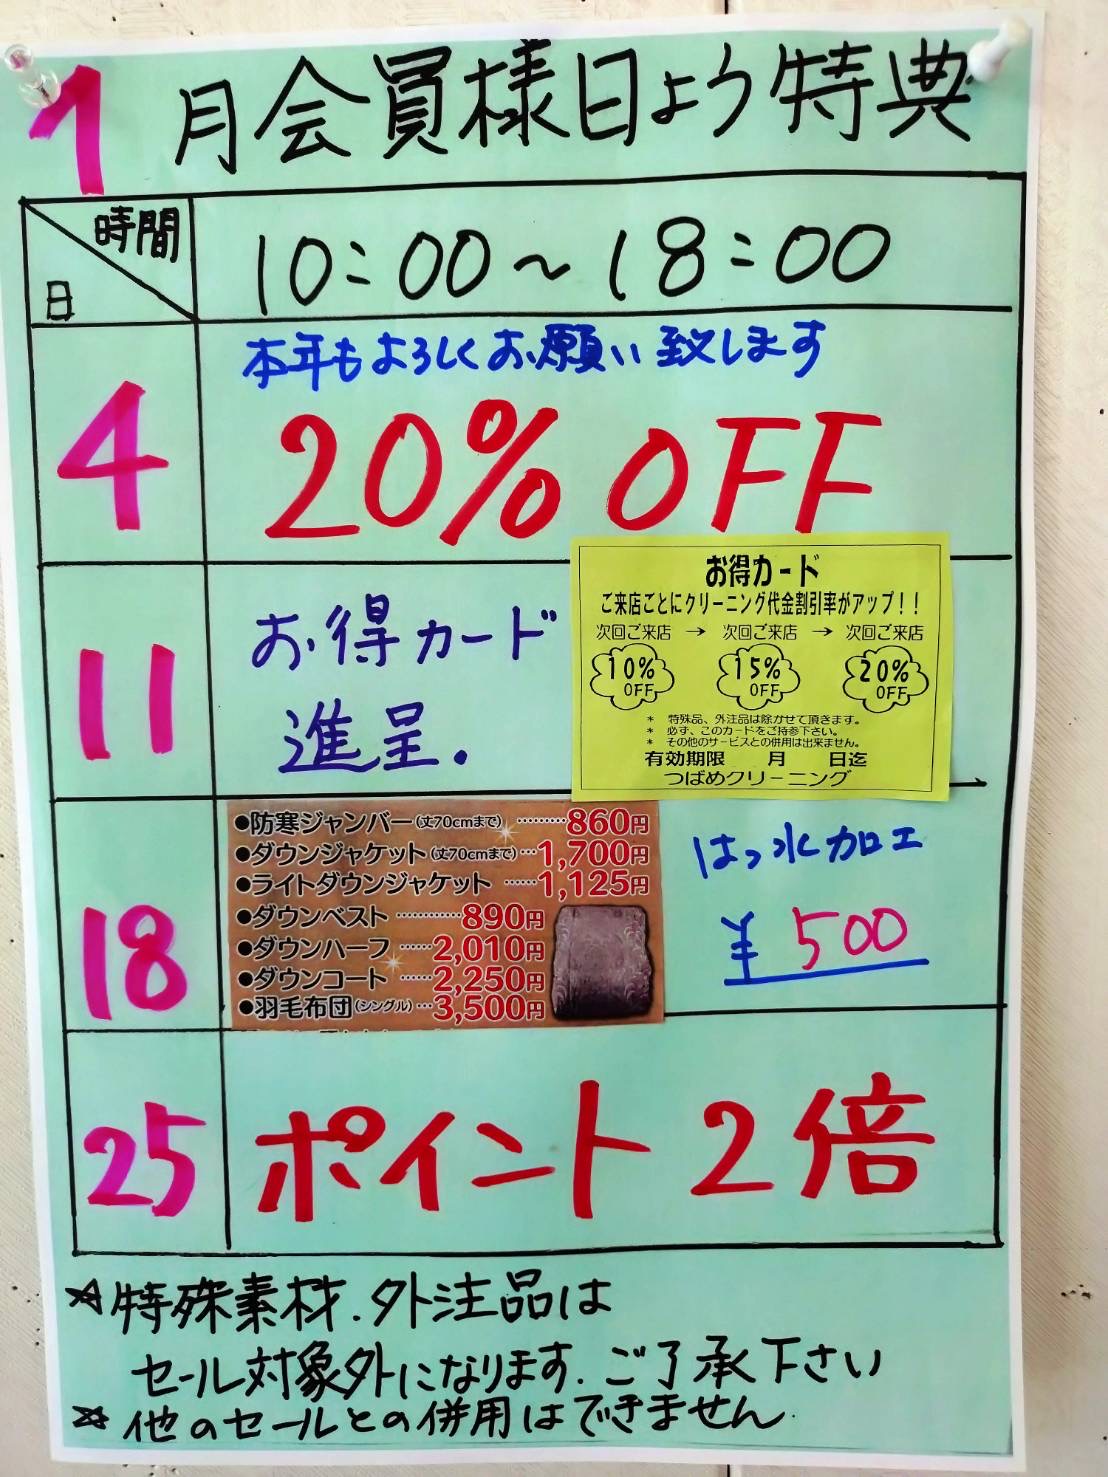 1月会員様日よう特典
時間
日
10:00〜18:00
4
本年もよろしくお願い致します
20%OFF
11
お得カード
進呈.
お得カード
ご来店ごとにクリーニング代金割引率がアップ！！
次回ご来店 → 次回ご来店 → 次回ご来店
10% OFF 15% OFF 20% OFF
* 特殊品、外注品は除かせて頂きます。
* 必ず、このカードをご持参下さい。
* その他のサービスとの併用は出来ません。
有効期限 月 日迄
つばめクリーニング
18
●防寒ジャンパー(丈70cmまで)………860円
●ダウンジャケット(丈70cmまで)…1,700円
●ライトダウンジャケット……1,125円
●ダウンベスト…………890円
●ダウンハーフ……2,010円
●ダウンコート……2,250円
●羽毛布団(シングル)…3,500円
はっ水加工
¥500
25
ポイント2倍
☆特殊素材.外注品は
セール対象外になります.ご了承下さい
☆他のセールとの併用はできません.